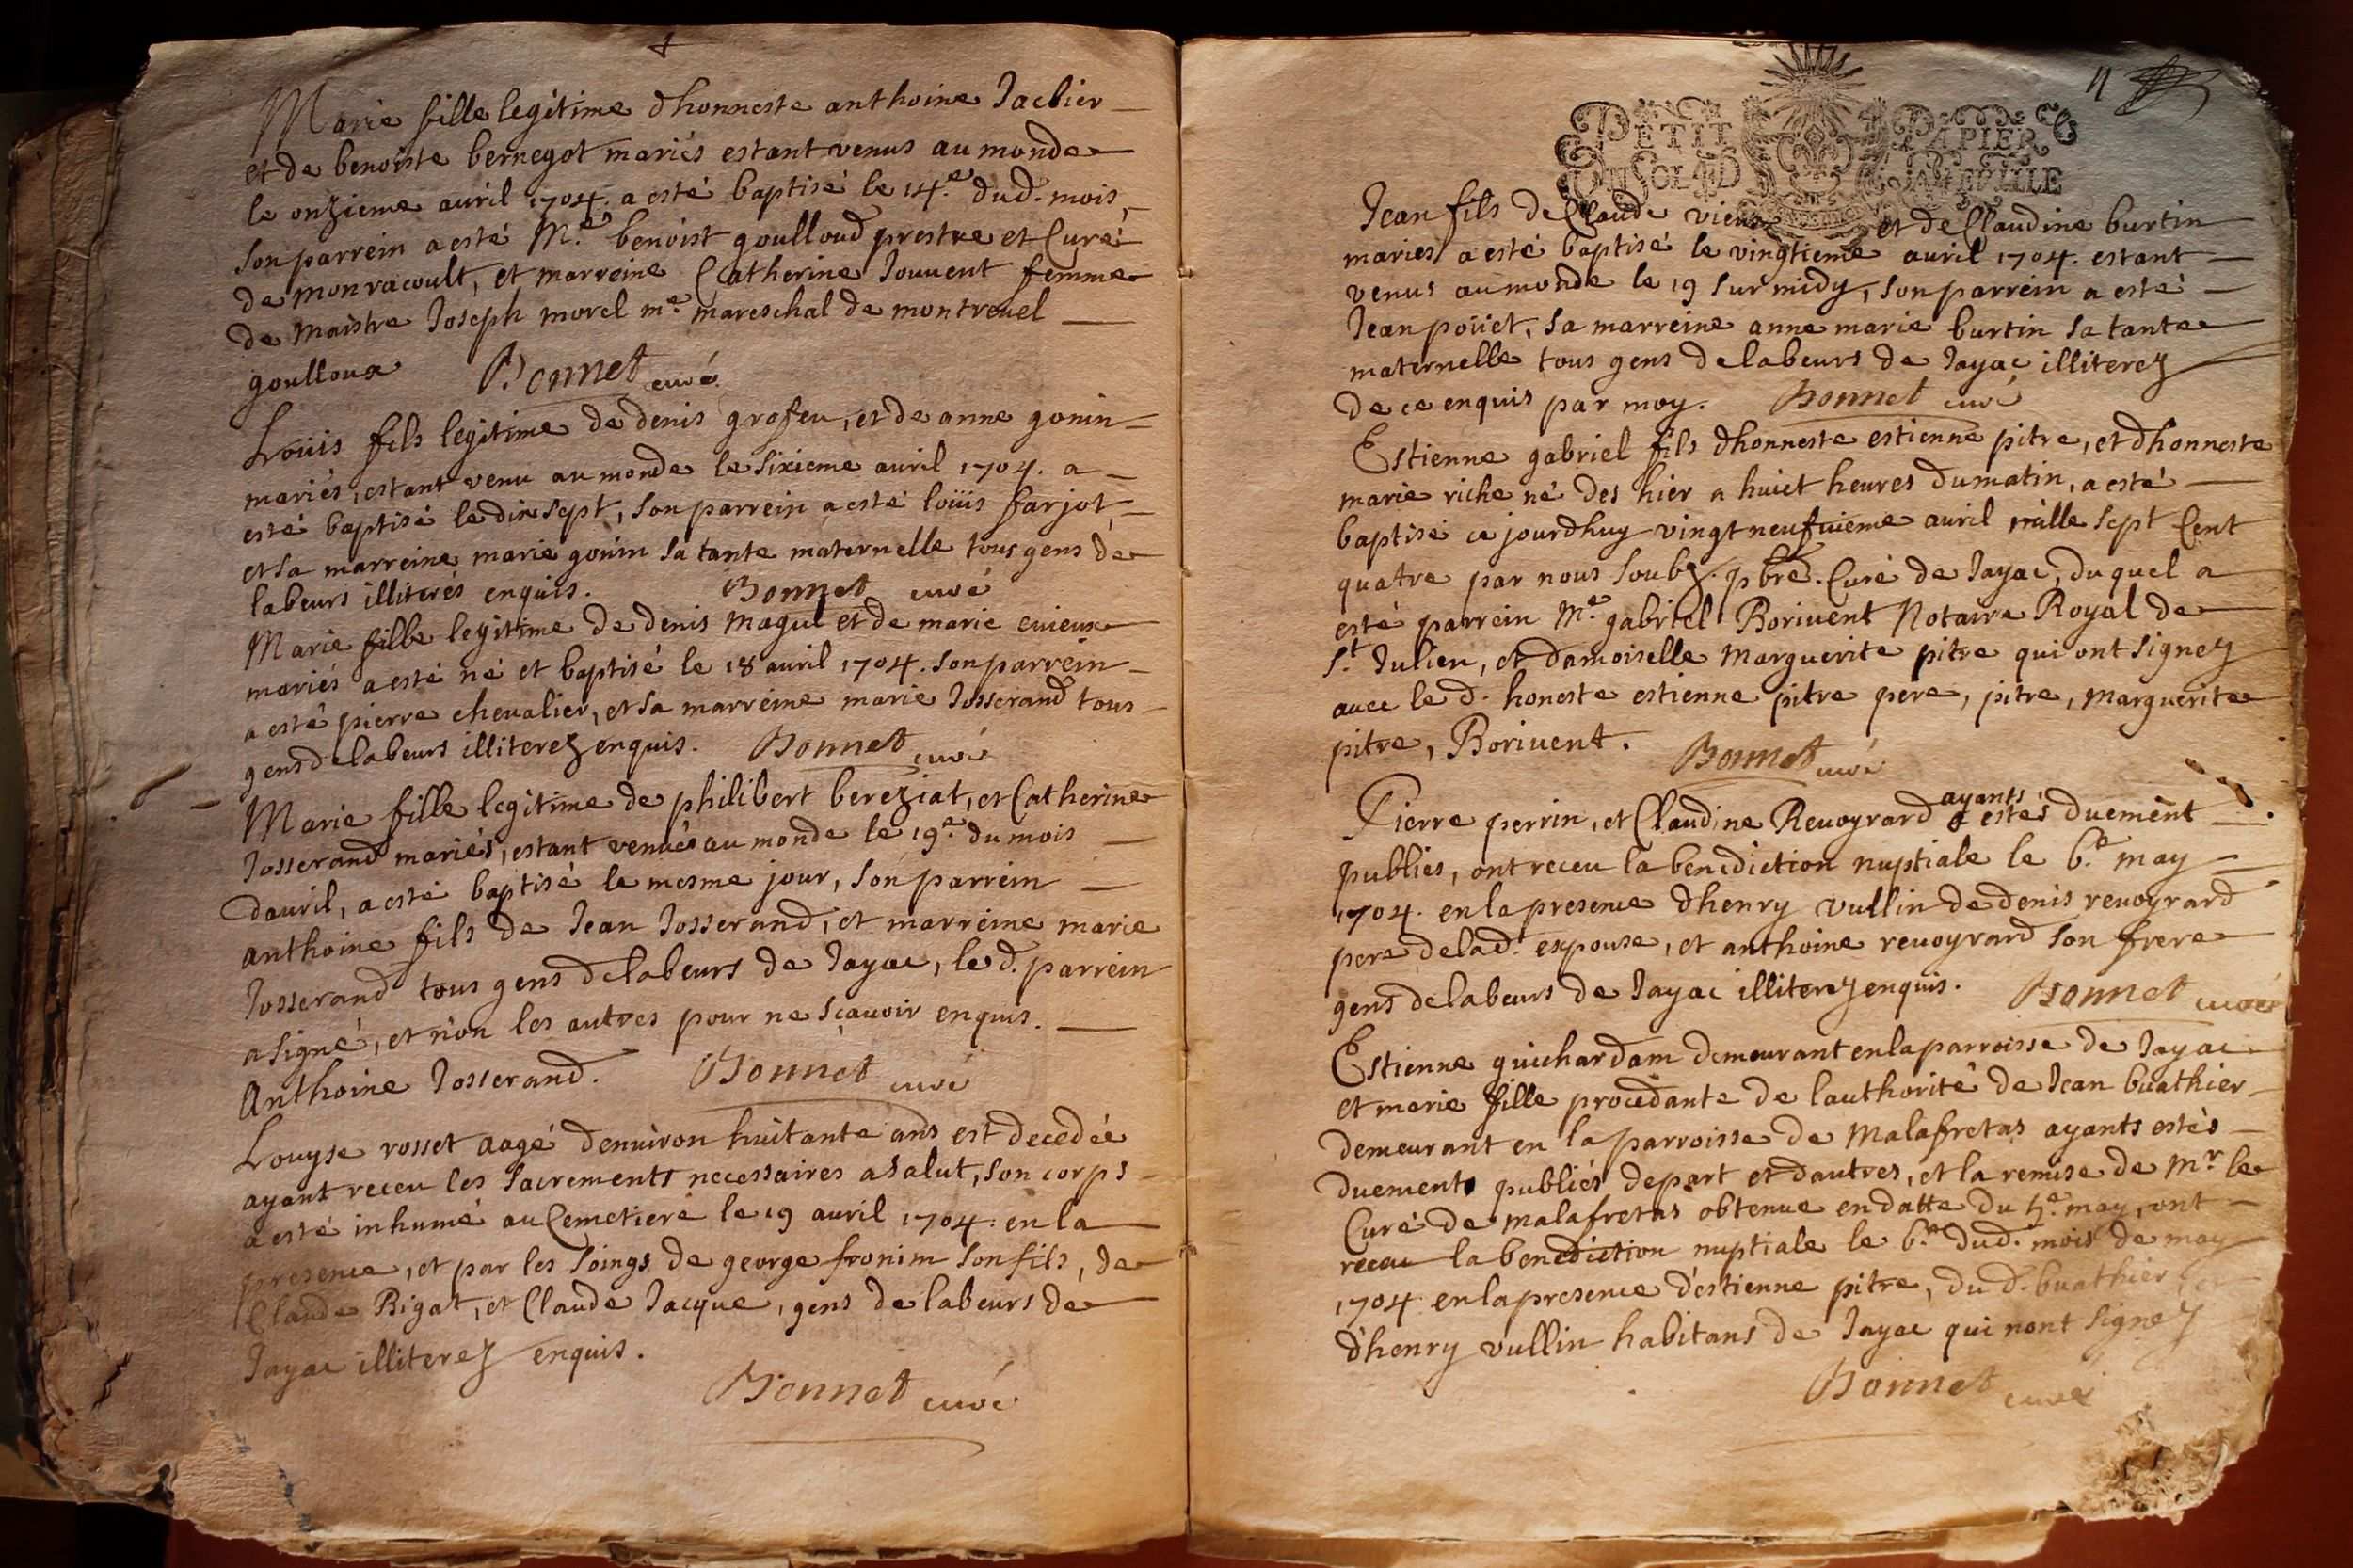 Marie fille legitime dhonneste anthoine Jaclier
et de benoiste bernegot mariés estant venus au monde
le onzieme auril 1704. a esté baptisé le 14.e dud. mois,
son parrein a esté M.e benoist goulloud prestre et Curé
de monracoult, et marreine Catherine Jouuent femme
de maistre Joseph morel m.e mareschal de montreuel
goulloux Bonnet curé
Loüis fils legitime de denis grosfeu, et de anne gonin
mariés, estant venu au monde le sixieme auril 1704. a
esté baptisé le dixsept, son parrein a esté loüis farjot,
et sa marreine marie gonin sa tante maternelle tous gens de
labeurs illiterés enquis. Bonnet curé
Marie fille legitime de denis maguet et de marie cuieux
mariés a esté né et baptisé le 18 auril 1704. son parrein
a esté pierre cheualier, et sa marreine marie Josserand tous
gens de labeurs illiterez enquis. Bonnet curé
Marie fille legitime de philibert bereziat, et Catherine
Josserand mariés, estant venuës au monde le 19.e du mois
dauril, a esté baptisé le mesme jour, son parrein
anthoine fils de Jean Josserand, et marreine marie
Josserand tous gens de labeurs de Jayac, le d. parrein
a signé, et non les autres pour ne sçauoir enquis.
Anthoine Josserand. Bonnet curé
Louyse rosset aagé denuiron huitante ans est decedée
ayant receu les sacrements necessaires a salut, son corps
a esté inhumé au Cemetiere le 19 auril 1704. en la
presence, et par les soings de george fronim son fils, de
Claude Rigat, et Claude Jacque, gens de labeurs de
Jayac illiterez enquis.
Bonnet curé
11
PETIT PAPIER
UN SOL 4D LA FEUILLE
Jean fils de Claude vieux et de Claudine burtin
maries a esté baptisé le vingtieme auril 1704. estant
venus au monde le 19 sur midy, son parrein a esté
Jean poüet, sa marreine anne marie burtin sa tante
maternelle tous gens de labeurs de Jayac illiterez
de ce enquis par moy. Bonnet curé
Estienne gabriel fils dhonneste estienne pitre, et dhonneste
marie riche né des hier a huict heures du matin, a esté
baptisé ce jourdhuy vingt neufuieme auril mille sept Cent
quatre par nous soubz. pbre. Curé de Jayac, du quel a
esté parrein M.e gabriel Boriuent Notaire Royal de
S.t Julien, et damoiselle marguerite pitre qui ont signez
auec le d. honeste estienne pitre pere, pitre, marguerite
pitre, Boriuent. Bonnet curé
Pierre perrin, et Claudine Reuoyrard ayants estés duement
publiés, ont receu la benediction nuptiale le 6.e may
1704. en la presence dhenry vullin de denis reuoyrard
pere de lad. espouse, et anthoine reuoyrard son frere
gens de labeurs de Jayac illiterez enquis. Bonnet curé
Estienne guichardam demeurant en la parroisse de Jayac
et marie fille procedante de lauthorité de Jean buathier
demeurant en la parroisse de malafretas ayants estés
duements publiés depart et dautres, et la remise de M.r le
Curé de malafretas obtenue en datte du 5.e may, ont
receu la benediction nuptiale le 6.e dud. mois de may
1704 en la presence d'estienne pitre, du d. buathier
d'henry vullin habitans de Jayac qui nont signez
Bonnet curé